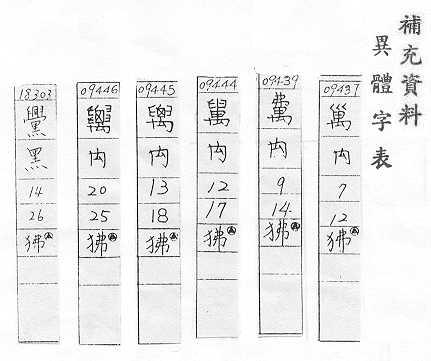 補充資料
異體字表
09437
禸
7
12
狒
09439
禸
9
14
狒
09444
禸
12
17
狒
09445
禸
13
18
狒
09446
禸
20
25
狒
18303
黑
14
26
狒